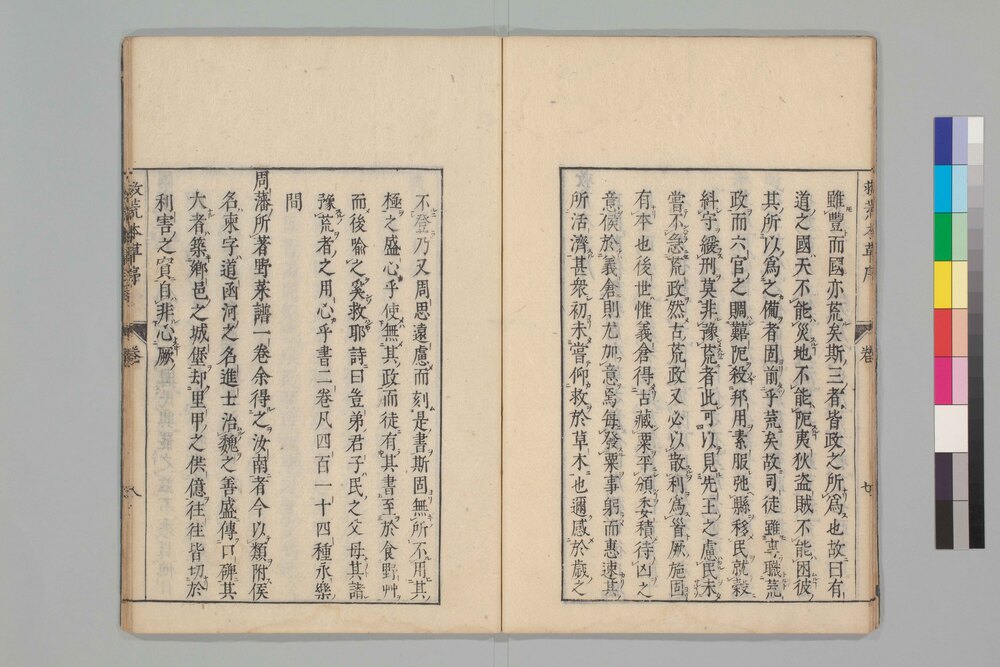 雖豐而國亦荒矣斯三者皆政之所為也故曰有
道之國天不能災地不能阨夷狄盜賊不能困彼
其所以為之備者固前乎荒矣故司徒雖專職荒
政而六官之賙囏阨殺邦用素服弛縣移民就穀
糾守緩刑莫非豫荒者此可以見先王之慮民未
嘗不急荒政然古荒政又必以散利為首厥施固
有本也後世惟義倉得古藏粟平頒委積待凶之
意侯於義倉則尤加意焉每發粟事躬而惠速其
所活濟甚衆初未嘗仰救於草木也邇感於歲之
不登乃又周思遠慮而刻是書斯固無所不用其
極之盛心乎使無其政而徒有其書至於食野艸
而後喻之奚救耶詩曰豈弟君子民之父母其諸
豫荒者之用心乎書二卷凡四百一十四種永樂
間
周藩所著野菜譜一卷余得之汝南者今以類附侯
名東字道函河之名進士治魏之善盛傳口碑其
大者築鄉邑之城堡却里甲之供億往往皆切於
利害之實自非心厥
救荒本草序
八